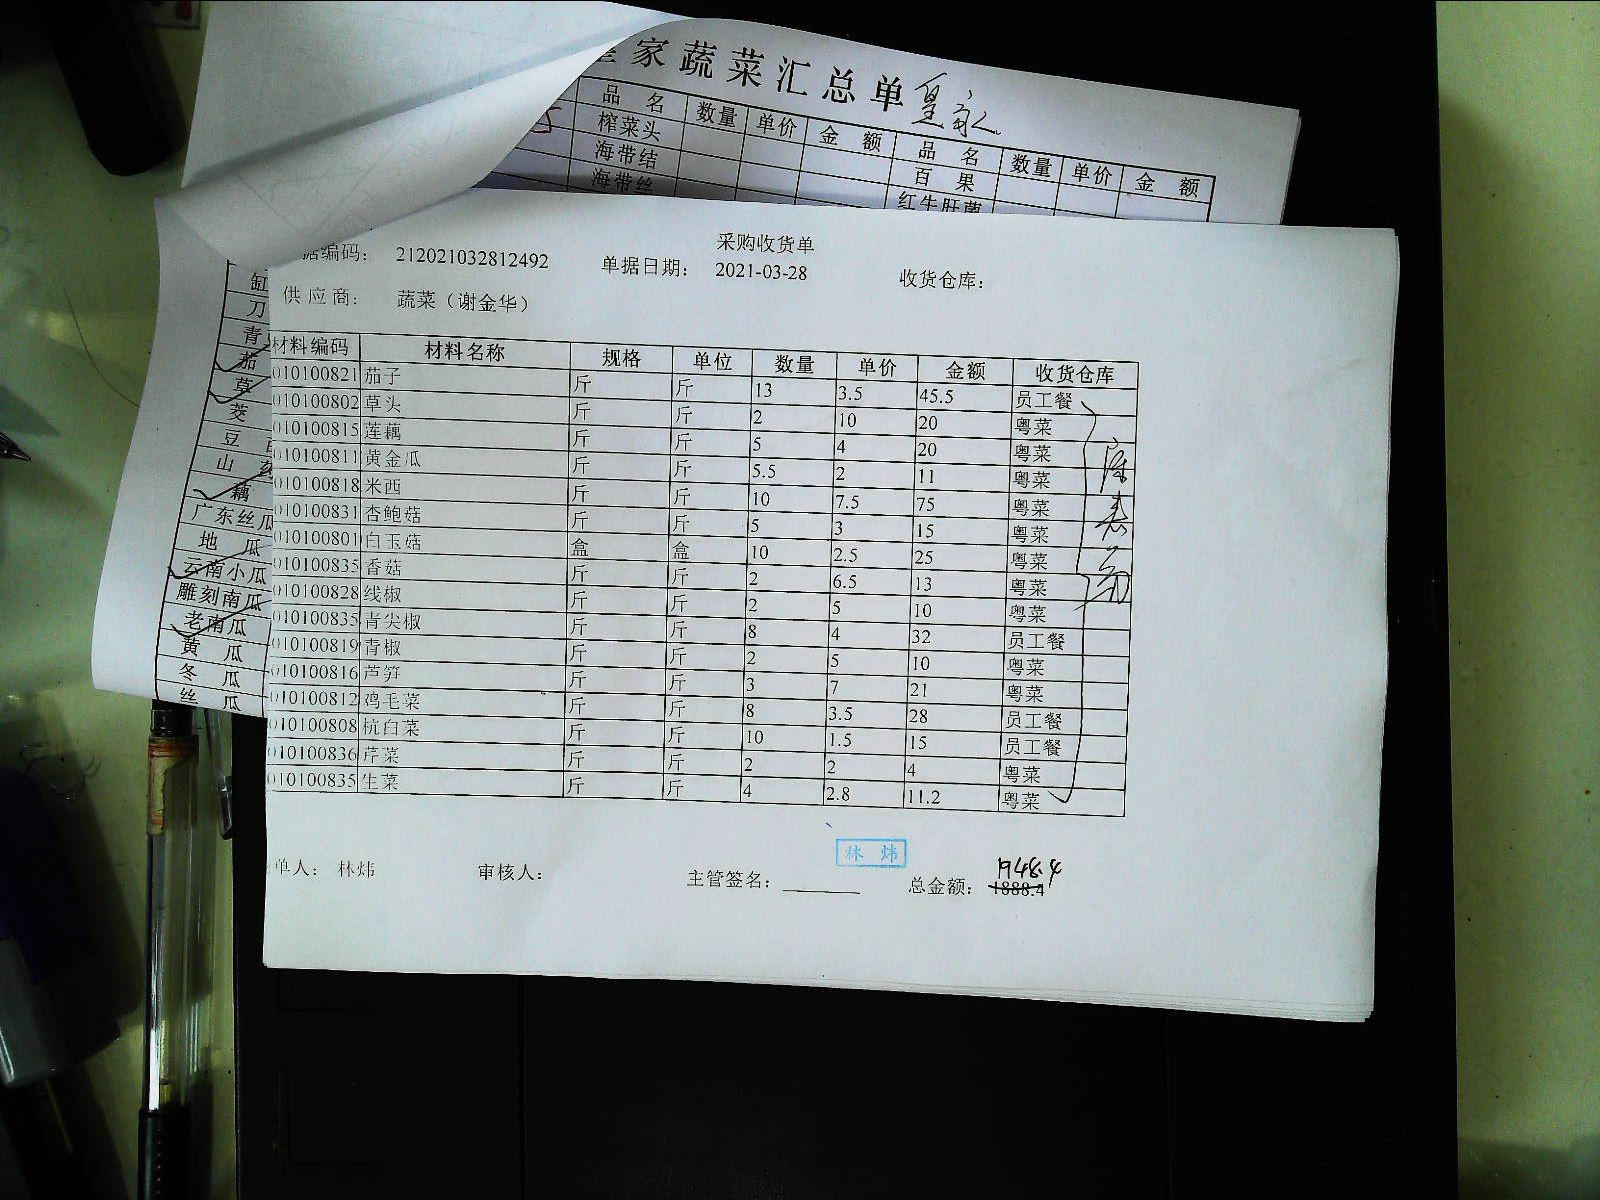 家蔬菜汇总单 皇家
品 名 数量 单价 金 额 品 名 数量 单价 金 额
榨菜头 百 果
海带结 红牛肝菌
海带丝
缸
刀
青
茄
草
茭
豆
山 药
藕
广东丝瓜
地 瓜
云南小瓜
雕刻南瓜
老南瓜
黄 瓜
冬 瓜
丝 瓜
采购收货单
据编码: 212021032812492 单据日期: 2021-03-28 收货仓库:
供应商: 蔬菜（谢金华）
材料编码 材料名称 规格 单位 数量 单价 金额 收货仓库
010100821 茄子 斤 斤 13 3.5 45.5 员工餐
010100802 草头 斤 斤 2 10 20 粤菜
010100815 莲藕 斤 斤 5 4 20 粤菜
010100811 黄金瓜 斤 斤 5.5 2 11 粤菜
010100818 米西 斤 斤 10 7.5 75 粤菜
010100831 杏鲍菇 斤 斤 5 3 15 粤菜
010100801 白玉菇 盒 盒 10 2.5 25 粤菜
010100835 香菇 斤 斤 2 6.5 13 粤菜
010100828 线椒 斤 斤 2 5 10 粤菜
010100835 青尖椒 斤 斤 8 4 32 员工餐
010100819 青椒 斤 斤 2 5 10 粤菜
010100816 芦笋 斤 斤 3 7 21 粤菜
010100812 鸡毛菜 斤 斤 8 3.5 28 员工餐
010100808 杭白菜 斤 斤 10 1.5 15 员工餐
010100836 芹菜 斤 斤 2 2 4 粤菜
010100835 生菜 斤 斤 4 2.8 11.2 粤菜
林 炜
1948.4
单人: 林炜 审核人: 主管签名: 总金额: 1888.4